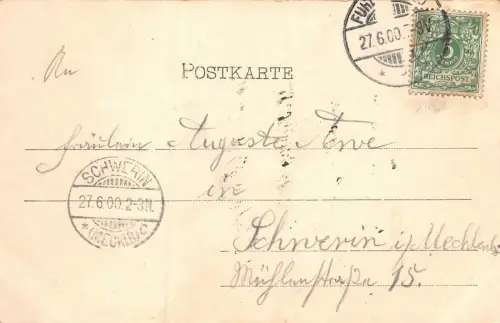 27.6.00. 2-3N.
5
REICHSPOST
An
POSTKARTE
Fräulein Auguste
in
SCHWERIN
27.6.00. 2-3N.
(MECKLB) c
Schwerin i/Mecklenb
Mühlenstraße 15.